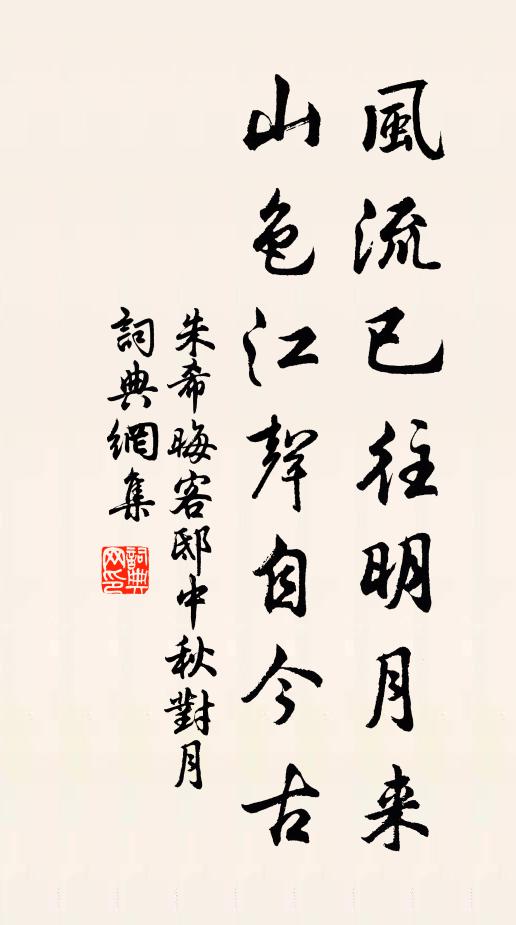 風流已往明月来
山色江聲自今古
朱希晦客邸中秋對月
詞典網集
詞典网印